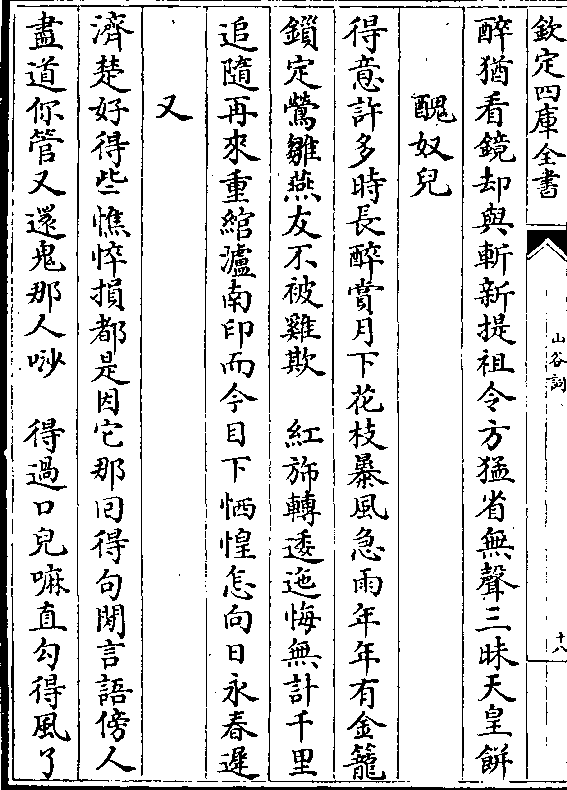 欽定四庫全書
山谷詞
十八
醉猶看鏡却與斬新提祖令方猛省無聲三昧天皇餅
醜奴兒
得意許多時長醉賞月下花枝暴風急雨年年有金籠
鎖定鶯雛燕友不被雞欺　紅旆轉逶迤悔無計千里
追隨再來重綰瀘南印而今目下恓惶怎向日永春遲
又
濟楚好得些憔悴損都是因它那囘得句閒言語傍人
盡道你管又還鬼那人唦　得過口兒嘛直勾得風了